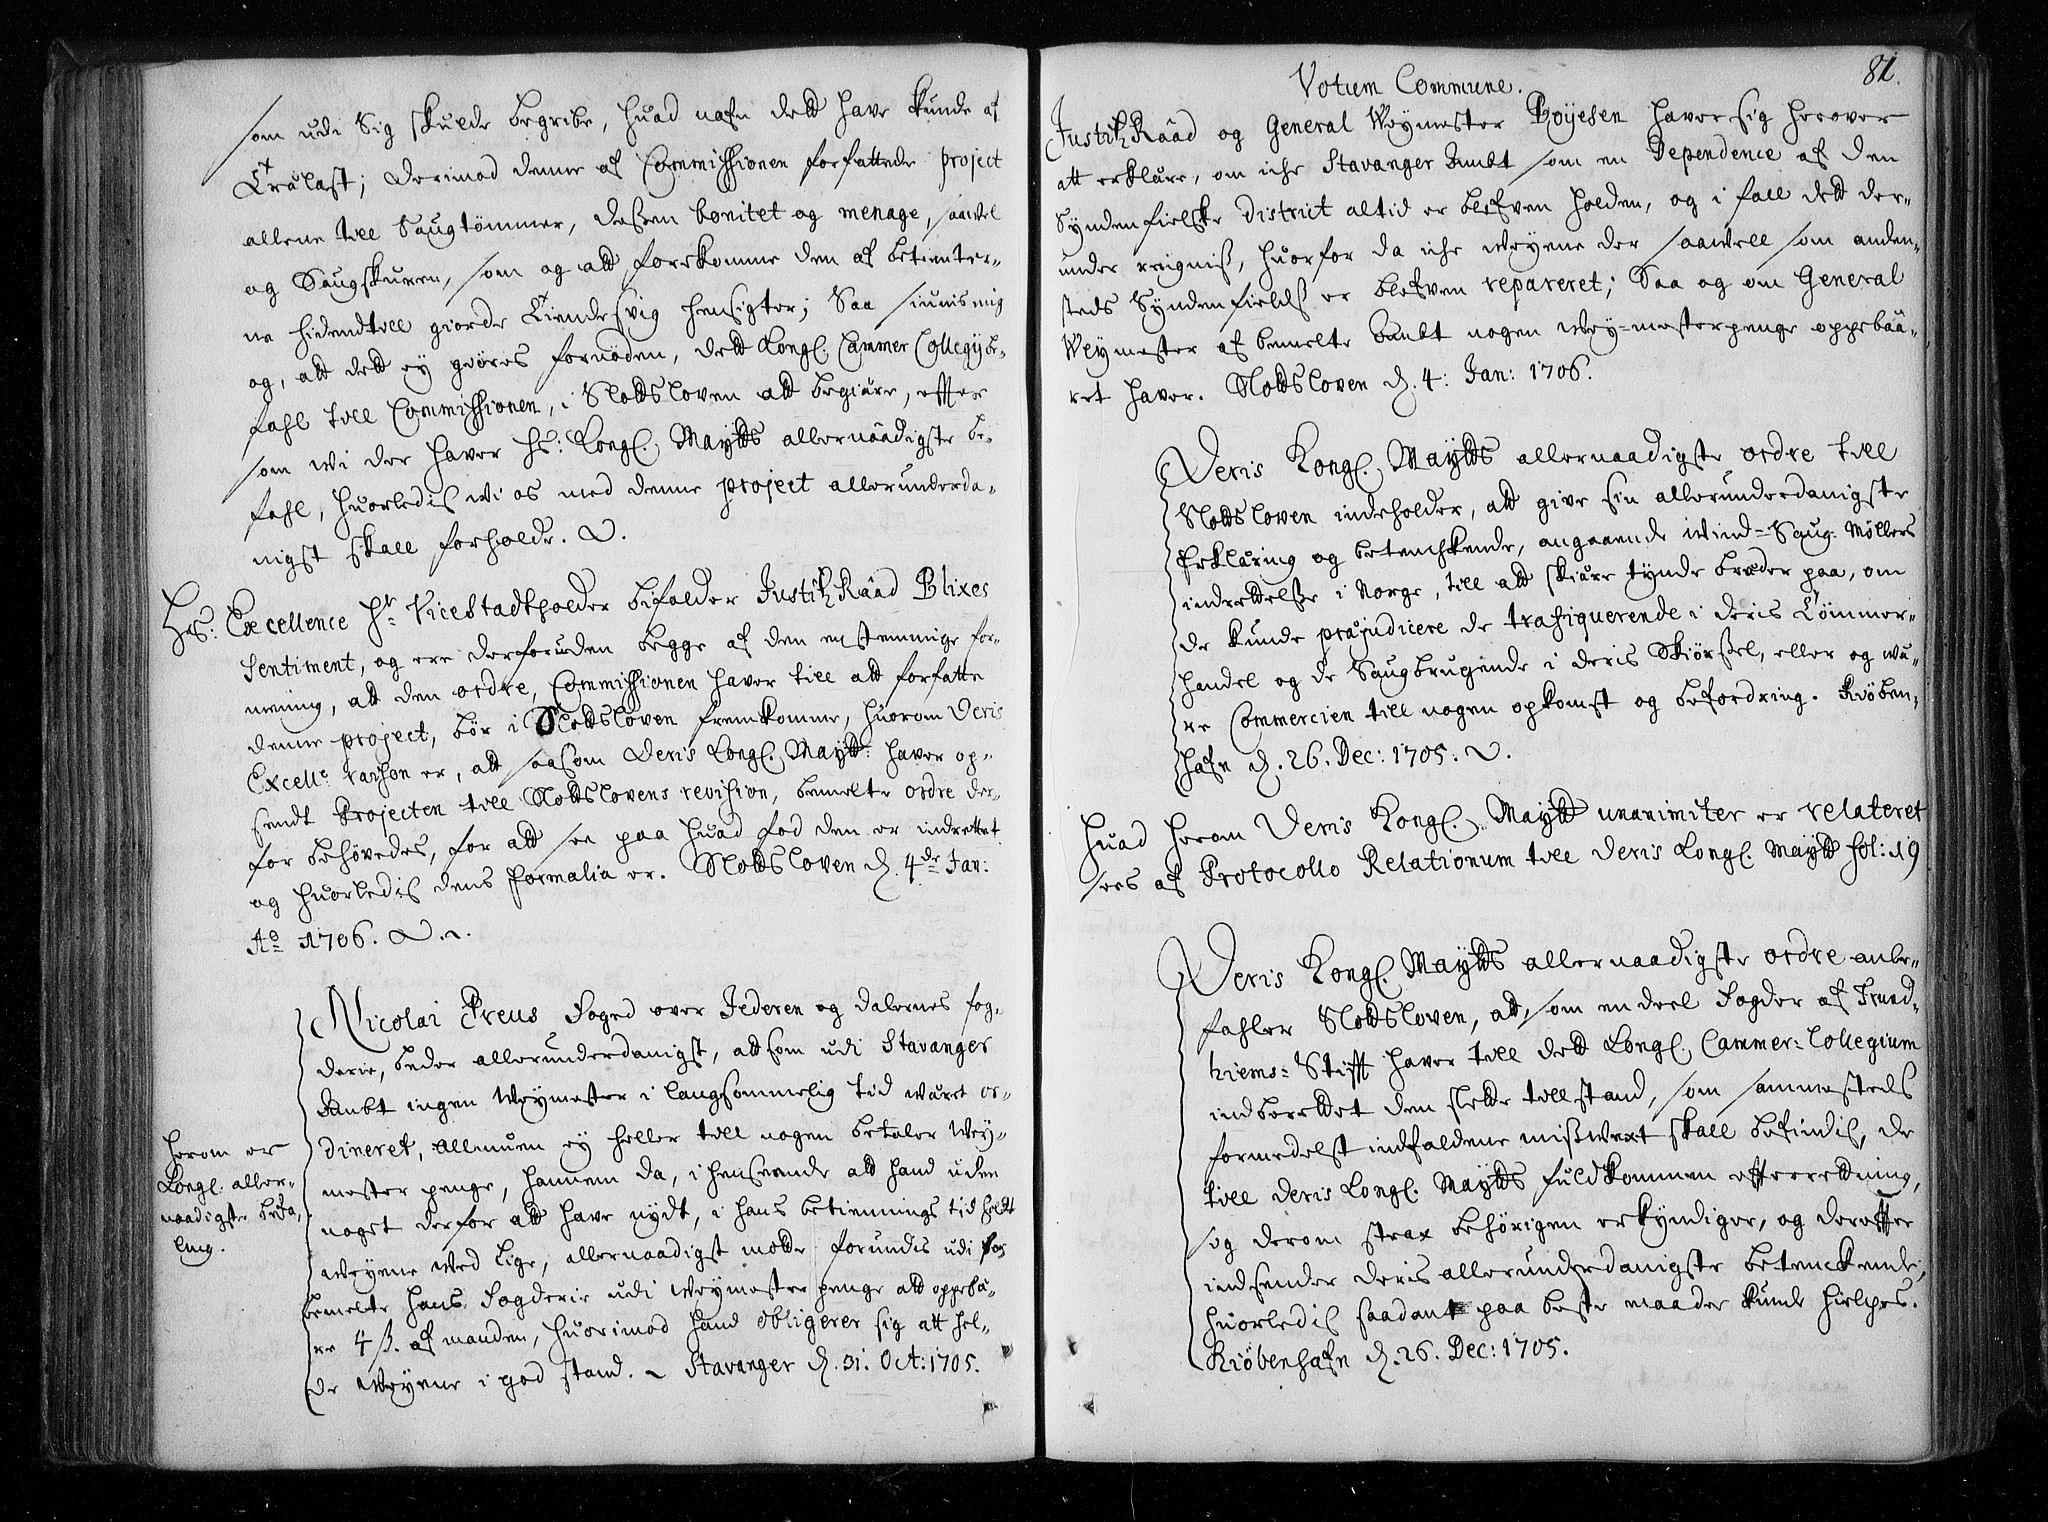 som udi Sig skulde begribe, huad nafn dett have kunde af
Trælast; derimod denne af Commissionen forfattede project
allene till Saugtømmer, desßen bonitet og menage, saavel
og Saugskuren, som og att forekomme den af betienter-
ne hidendtill giorde Tiendesvig hensigter; Saa siunis mig
og, att dett ey giøres fornöden, dett Kongl. Cammer Collegij be-
fahl till Commissionen, i Slottsloven att begiære, efter
som wi der haver Hs: Kongl. Maytts allernaadigste be-
fahl, huorledis wi os med denne project allerunderda-
nigst skall forholde.
Hs: Excellence Hr. Vicestadtholder bifalder Justitz Raad Blixes
Sentiment, og ere derforuden begge af den enstemmige for-
mening, att den ordre, Commissionen haver till att forfatte
denne project, bør i Slottsloven fremkomme, huorom Deris
Excellce raison er, att saasom Deris Kongl. Maytt: haver op-
sendt Projecten till Slottslovens revision, bemelte ordre der-
for behøvedes, for att see paa huad fod den er indrettet
og huorledis dens formalia er. Slottsloven d. 4de Jan:
Ao 1706.
Nicolai Preus Foged over Jederen og Dalernes fog-
derie, beder allerunderdanigst, att som udi Stavanger
Ambt ingen Weymester i langsommelig tid wæret or-
dineret, Allmuen ey heller till nogen betaler Wey-
mester penge, hannem da, i henseende att hand uden
noget derfor att have nydt, i hans betiennings tid holdt
weyene wed lige, allernaadigst motte forundis udi for
bemelte hans Fogderie udi Weymester penge att oppebæ-
re 4 ß. af manden, huorimod hand obligerer sig att hol-
de Weyene i god stand. Stavanger d. 31. Oct: 1705.
herom er
Kongl. aller-
naadigste befa,
ling.
81.
Votum Commune.
Justitz Raad og General Weymester Boyesen haver sig herover
att erklære, om iche Stavanger Ambt som en Dependence af den
Syndenfielske District altid er blefven holden, og i fall dett der-
under reignis, huorfor da iche weyene der saawell som anden-
steds Syndenfields er blefven repareret; Saa og om General
Weymester af bemelte Ambt nogen wey-mesterpenge oppebaa-
ret haver. Slottsloven d. 4: Jan: 1706.
Deris Kongl. Maytts allernaadigste ordre till
Slottsloven indeholder, att give sin allerunderdanigste
Erklæring og betenchkende, angaaende wind-Saug-Møllers
indrettelse i Norge, till att skiære tynde breder paa, om
de kunde præjudicere de trafiquerende i deris Tömmer-
handel og de Saugbrugende i deris Skiørßel, eller og wæ-
re Commercien till nogen opkomst og befordring. Kiøben-
hafn d. 26. Dec: 1705.
Huad herom Deris Kongl. Maytt unanimiter er relateret
sees af Protocollo Relationum till Deris Kongl. Maytt fol: 19
Deris Kongl. Maytts allernaadigste ordre anbe-
fahler Slottsloven, att, som en deel Fogder af Trund-
hiems-Stifft haver till dett Kongl. Cammer-Collegium
indberettet den slette tillstand, som sammesteds
formedelst indfaldene mißwext skall befindis, de
till Deris Kongl. Maytts fuldkommen efterrettning,
sig derom strax behörigen erkyndiger, og derefter
indsender deris allerunderdanigste betenckende,
huorledis saadant paa beste maader kunde hielpes.
Kiöbenhafn d. 26. Dec: 1705.